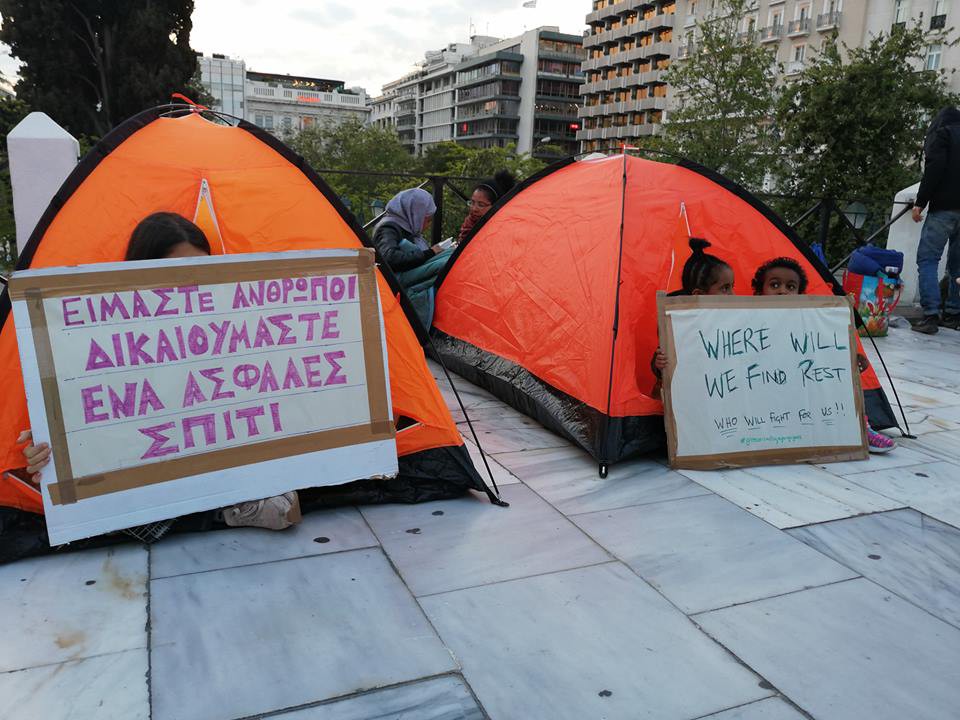 ΕΙΜΑΣΤΕ ΑΝΘΡΩΠΟΙ
ΔΙΚΑΙΟΥΜΑΣΤΕ
ΕΝΑ ΑΣΦΑΛΕΣ
ΣΠΙΤΙ
WHERE WILL
WE FIND REST
WHO WILL FIGHT FOR US!!